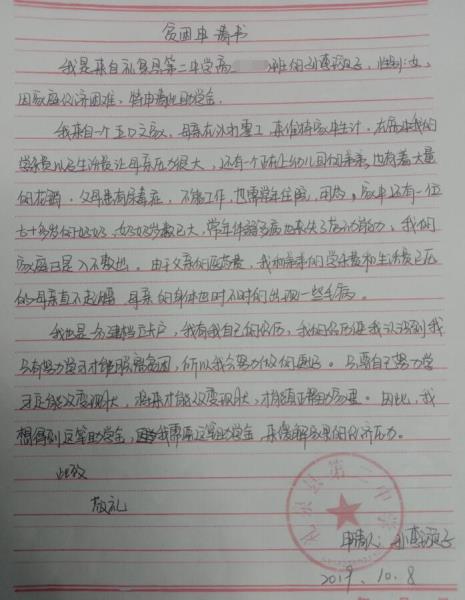 贫困申请书
我是来自礼泉县第二中学高 班的 ,性别:女,
因家庭经济困难,特申请此助学金。
我来自一个五口之家,母亲在外打零工,来维持家中生计,在高中我的
学杂费以及生活费让母亲压力很大,还有一个正在上幼儿园的弟弟,也有着大量
的花销。父母患有尿毒症,不能工作,也需常年住院,用药。家中还有一位
七十多岁的奶奶,奶奶岁数已大,常年体弱多病也丧失了劳动能力,我们
家庭已是入不敷出。由于父亲的医药费,我和弟弟的学杂费和生活费已压
的母亲直不起腰,母亲的身体也时不时的出现一些毛病。
我也是 建档立卡户,我有我自己的经历,我的经历使我认识到我
只有努力学习才能摆脱贫困,所以我会努力做的更好。只要自己努力学
习定能改变现状,将来才能改变现状,才能真正帮助家里。因此,我
想得到这笔助学金,因为我需要这笔助学金,来缓解家里的经济压力。
此致
敬礼
礼泉县第二中学
申请人:
2019.10.8